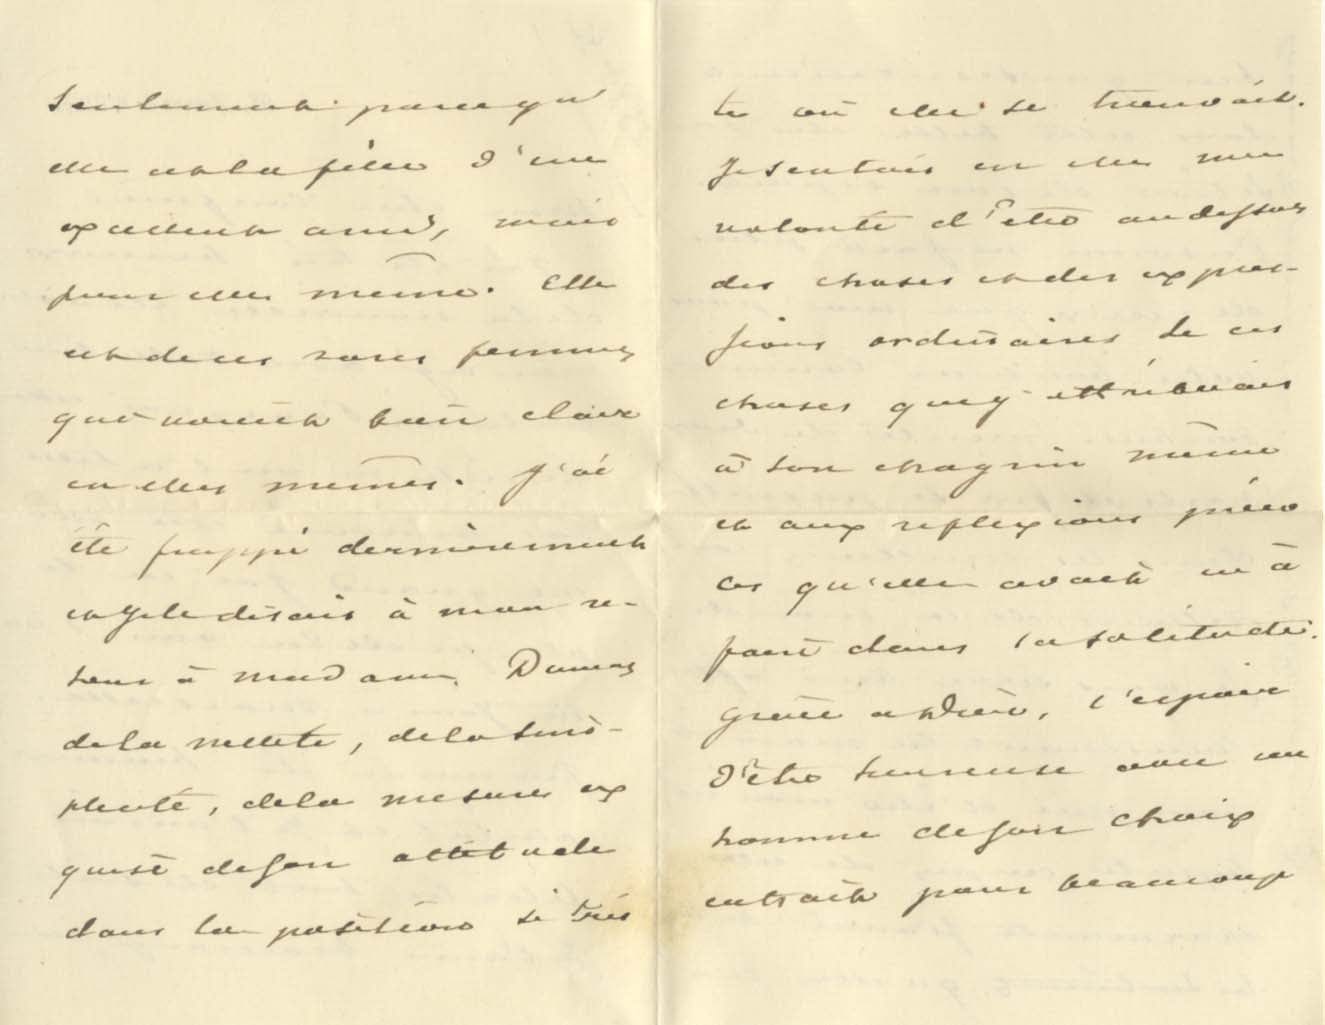 seulement parcequ'
elle est la fille d'un
excellent ami, mais
pour elle même. Elle
est de ces rares femmes
qui voient bien clair
en elles mêmes. J'ai
été frappé dernièrement
et je le disais à mon re-
tour à madame Dumas
de la netteté, de la sim-
plicité, de la mesure ex
quise de son attitude
dans la position si tris
te où elle se trouvait.
Je sentais en elle une
volonté d'être au dessus
des choses et des expres-
sions ordinaires de ces
choses que j'attribuais
à son chagrin même
et aux reflexions préco
ces qu'elle avait
faire dans la solitude.
Grâce à Dieu, l'espoir
d'être heureuse avec un
homme de son choix
entrait pour beaucoup